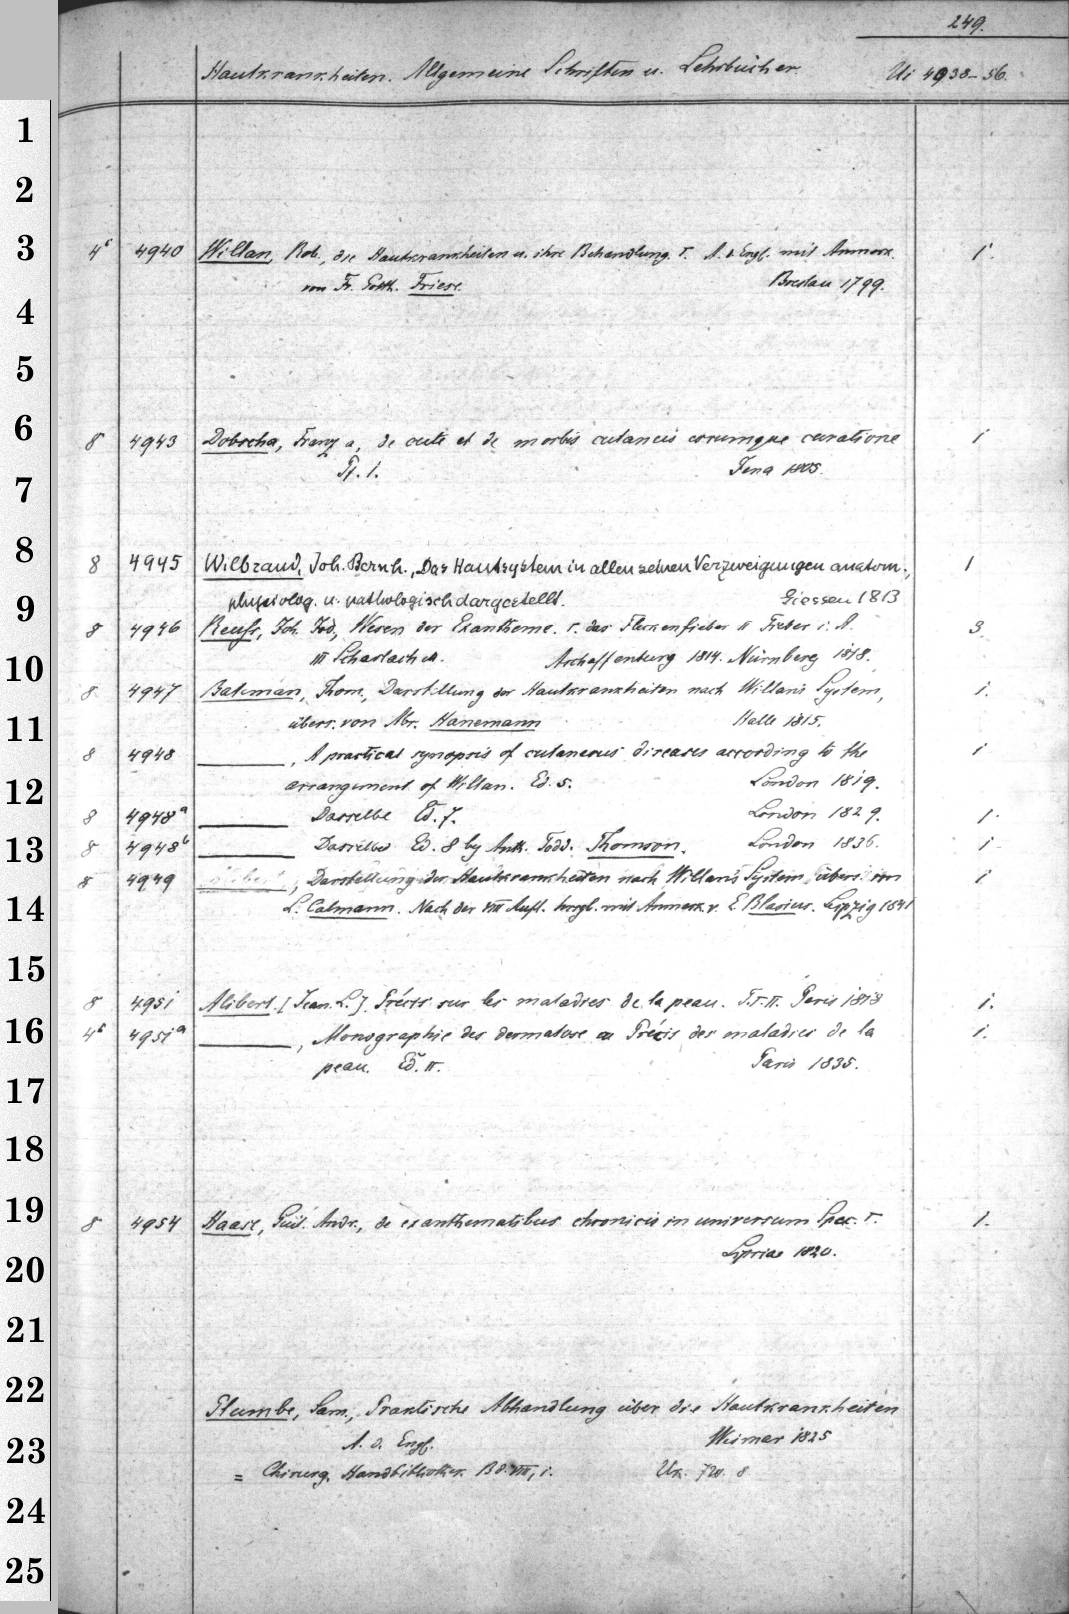 249.
Hautkrankheiten. Allgemeine Schriften u. Lehrbücher. Ui 4938-56.
1
2
3 4° 4940 Willan, Rob., die Hautkrankheiten u. ihre Behandlung. I. A. d. Engl. mit Anmerk. 1.
von Fr. Gotth. Friese. Breslau 1799.
4
5
6 8 4943 Dobscha, Franz a, de cute et de morbis cutaneis eorumque curatione 1
Pt. 1. Jena 1805.
7
8 8 4945 Wilbrand, Joh. Bernh., Das Hautsystem in allen seinen Verzweigungen anatom., 1
9 physiolog. u. pathologisch dargestellt. Giessen 1813
8 4946 Reuss, Joh. Jod., Wesen der Exantheme. I. das Fleckenfieber II Fieber i. A. 3
10 III Scharlach. Aschaffenburg 1814. Nürnberg 1818.
8 4947 Bateman, Thom., Darstellung der Hautkrankheiten nach Willan's System, 1.
11 übers. von Abr. Hanemann Halle 1815.
8 4948 , A practical synopsis of cutaneous diseases according to the 1
12 arrangement of Willan. Ed. 5. London 1819.
8 4948a Dasselbe Ed. 7. London 1829. 1.
13 8 4948b Dasselbe Ed. 8 by Anth. Todd. Thomson. London 1836. 1
8 4949 , Darstellung der Hautkrankheiten nach Willan's System übers. von 1
14 L. Calmann. Nach der VIII Aufl. hrsgb. mit Anmerk. v. E Blasius. Leipzig 1841
15
8 4951 Alibert. [Jean. L.] Précis sur les maladies de la peau. T. I. II. Paris 1818 1.
16 4° 4951a , Monographie des dermatose ou Précis des maladies de la 1.
peau. Ed. II. Paris 1835.
17
18
19 8 4954 Haase, Guil. Andr., de exanthematibus chronicis in universum Spec. I. 1.
20 Lipsiae 1820.
21
22 Plumbe, Sam., Praktische Abhandlung über die Hautkrankheiten
23 A. d. Engl. Weimar 1825
= Chirurg. Handbibliothek. Bd. VIII, 1. Ux. 720. 8
24
25